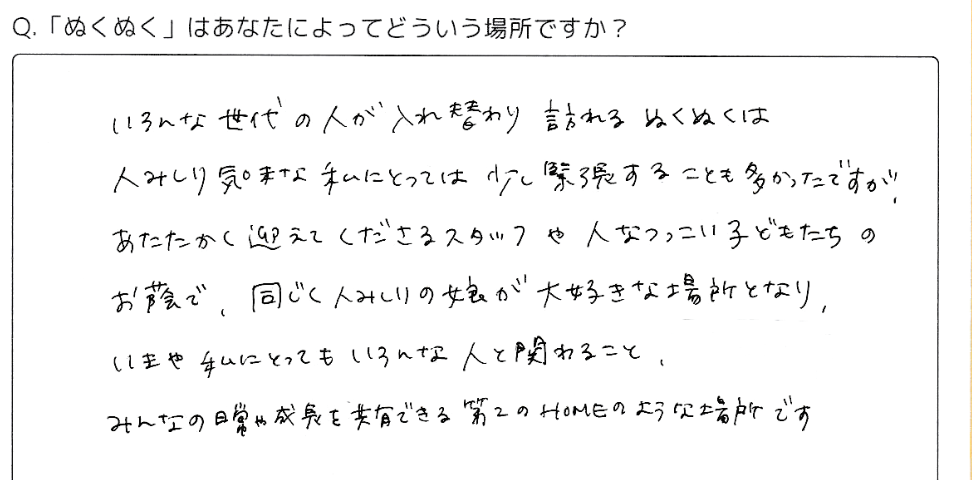 Q.「ぬくぬく」はあなたによってどういう場所ですか？
いろんな世代の人が入れ替わり訪れるぬくぬくは
人みしり気味な私にとっては少し緊張することも多かったですが、
あたたかく迎えてくださるスタッフや人なつっこい子どもたちの
お蔭で、同じく人みしりの娘が大好きな場所となり、
いまや私にとってもいろんな人と関われること、
みんなの日常や成長を共有できる第2のHOMEのような場所です